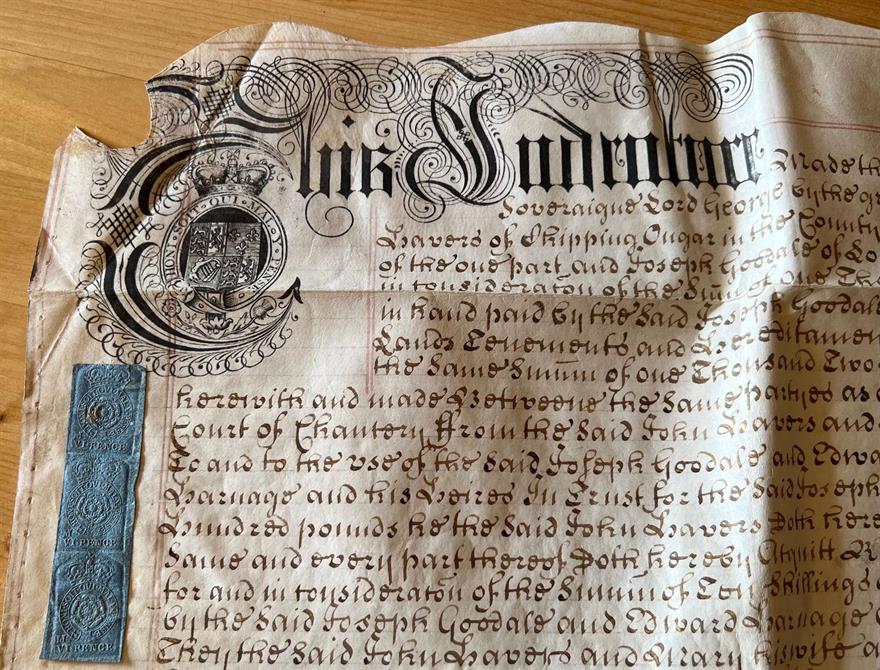 This Indenture Made th
Soveraigne Lord George by the gr
Havers of Chipping Ongar in the County
of the one part and Joseph Goodale of Lo
in Consideraton of the Sum of One Th
in hand paid by the Said Joseph Goodale
Lands Tenements and Hereditamen
the Same Summ of One Thousand Two
herewith and made Betweene the Same partyes as
Court of Chancery From the Said John Havers and
To and to the use of the Said Joseph Goodale and Edwa
Harnage and his Heires In Trust for the Said Joseph
Hundred pounds he the Said John Havers Doth here
Same and every part thereof Doth hereby Acquitt R
for and in Consideraton of the Summ of Ten Shillings
by the Said Joseph Goodale and Edward Harnage
They the Said John Havers and Mary his wife a
HONI SOIT QUI MAL Y PENSE
VI PENCE
VI PENCE
VI PENCE